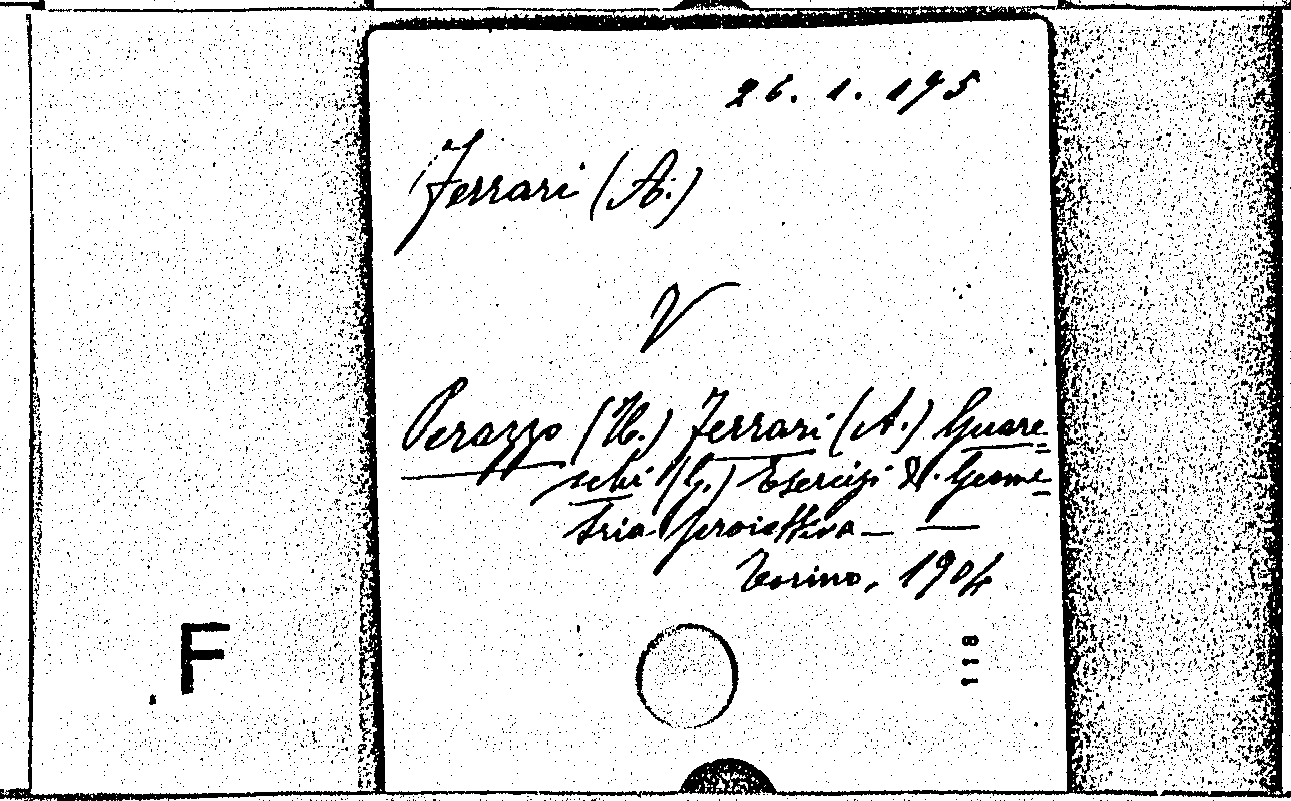 26. 1. 195
Ferrari (A.)
V
Perazzo (U.) Ferrari (A.) Guare=
schi (G.) Esercizi di Geome=
tria proiettiva — —
Torino, 1904
F
118